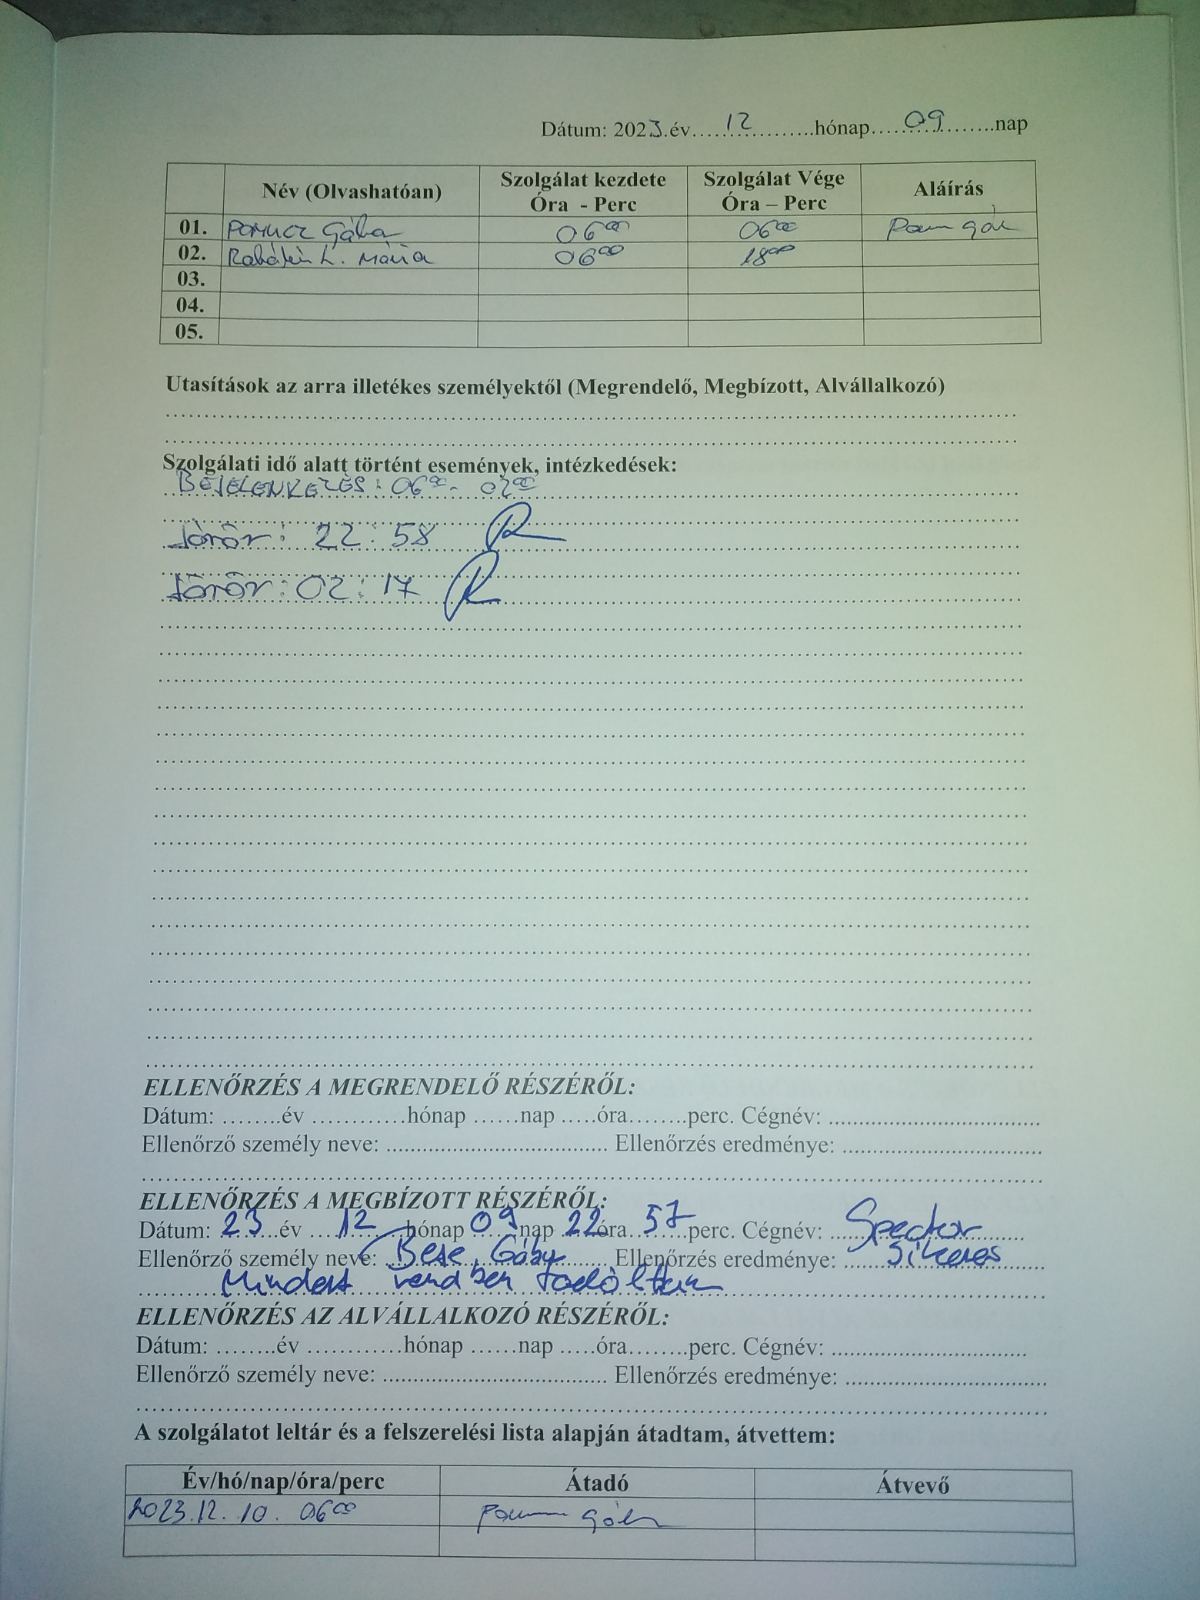 Dátum: 2023.év....12....hónap....09....nap
Név (Olvashatóan) Szolgálat kezdete Óra - Perc Szolgálat Vége Óra – Perc Aláírás
01. Gába 06⁰⁰ 06⁰⁰
02. L. Mária 06⁰⁰ 18⁰⁰
03.
04.
05.
Utasítások az arra illetékes személyektől (Megrendelő, Megbízott, Alvállalkozó)
Szolgálati idő alatt történt események, intézkedések:
BEJELENKEZÉS: 06⁰⁰ -
Járőr: 22:58
Járőr: 02:17
ELLENŐRZÉS A MEGRENDELŐ RÉSZÉRŐL:
Dátum: ........év ............hónap ......nap .....óra........perc. Cégnév: ....................................
Ellenőrző személy neve: ..................................... Ellenőrzés eredménye: .................................
ELLENŐRZÉS A MEGBÍZOTT RÉSZÉRŐL:
Dátum: 23 év 12 hónap 09 nap 22 óra 57 perc. Cégnév: Spector
Ellenőrző személy neve: Bese Ellenőrzés eredménye: Sikeres
Mindent rendben
ELLENŐRZÉS AZ ALVÁLLALKOZÓ RÉSZÉRŐL:
Dátum: ........év ............hónap ......nap .....óra........perc. Cégnév: .................................
Ellenőrző személy neve: ..................................... Ellenőrzés eredménye: .................................
A szolgálatot leltár és a felszerelési lista alapján átadtam, átvettem:
Év/hó/nap/óra/perc Átadó Átvevő
2023.12. 10. 06⁰⁰